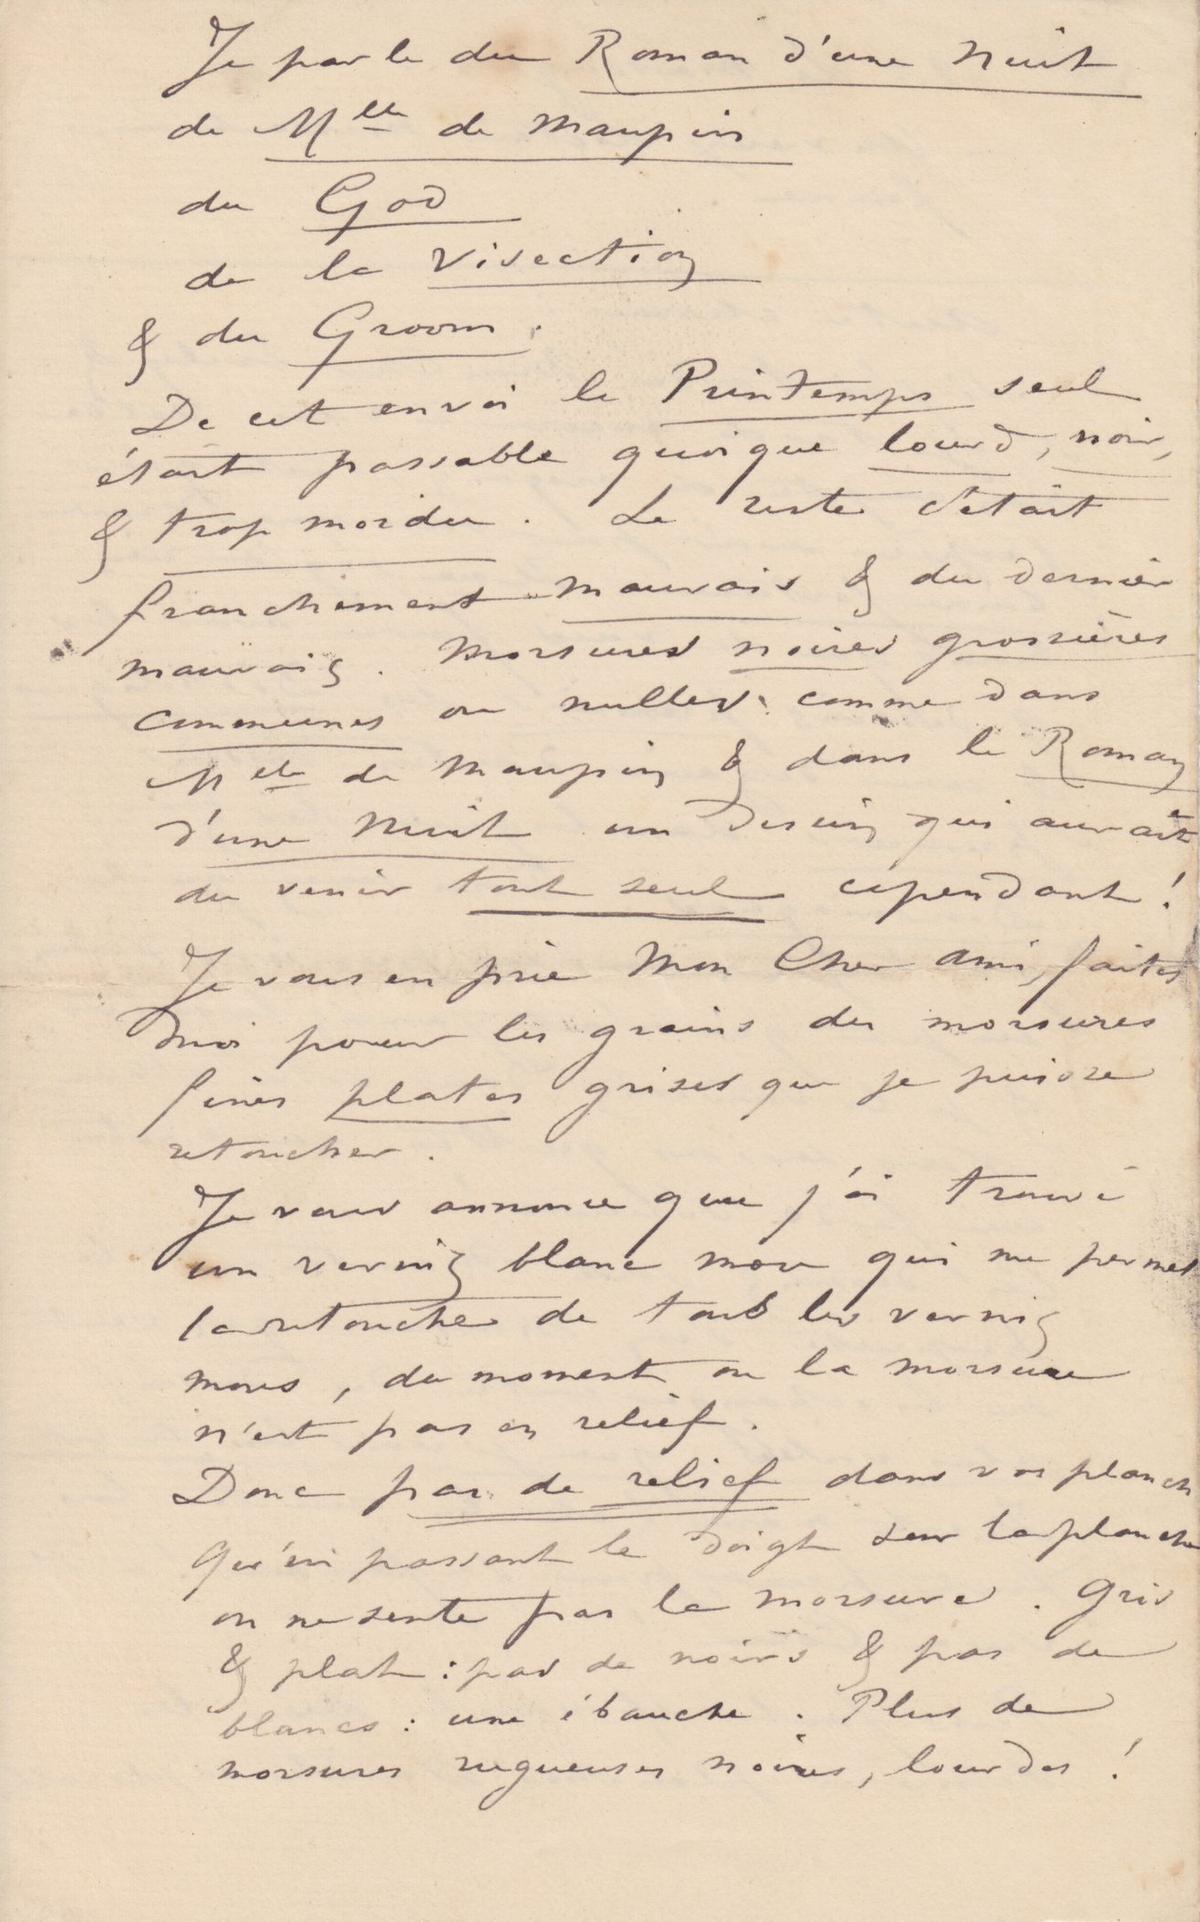 Je parle du Roman d'une Nuit
de Mlle de Maupin
du God
de la Visection
& du Groom.
De cet envoi le Printemps seul
était passable quoique lourd, noir,
& trop mordu. Le reste c'était
franchement mauvais & du dernier
mauvais. Morsures noires grossières
communes ou nulles comme dans
Mlle de Maupin & dans le Roman
d'une Nuit un dessin qui aurait
du venir tout seul cependant !
Je vous en prie Mon Cher Ami, faites
moi pour les grains des morsures
fines plates grises que je puisse
retoucher.
Je vous annonce que j'ai trouvé
un vernis blanc mou qui me permet
la retouche de tous les vernis
mous, du moment ou la morsure
n'est pas en relief.
Donc pas de relief dans vos planches
Qu'en passant le doigt sur la planche
on ne sente pas la morsure. Gris
& plat : pas de noirs & pas de
blancs : une ébauche. Plus de
morsures rugueuses noires, lourdes !